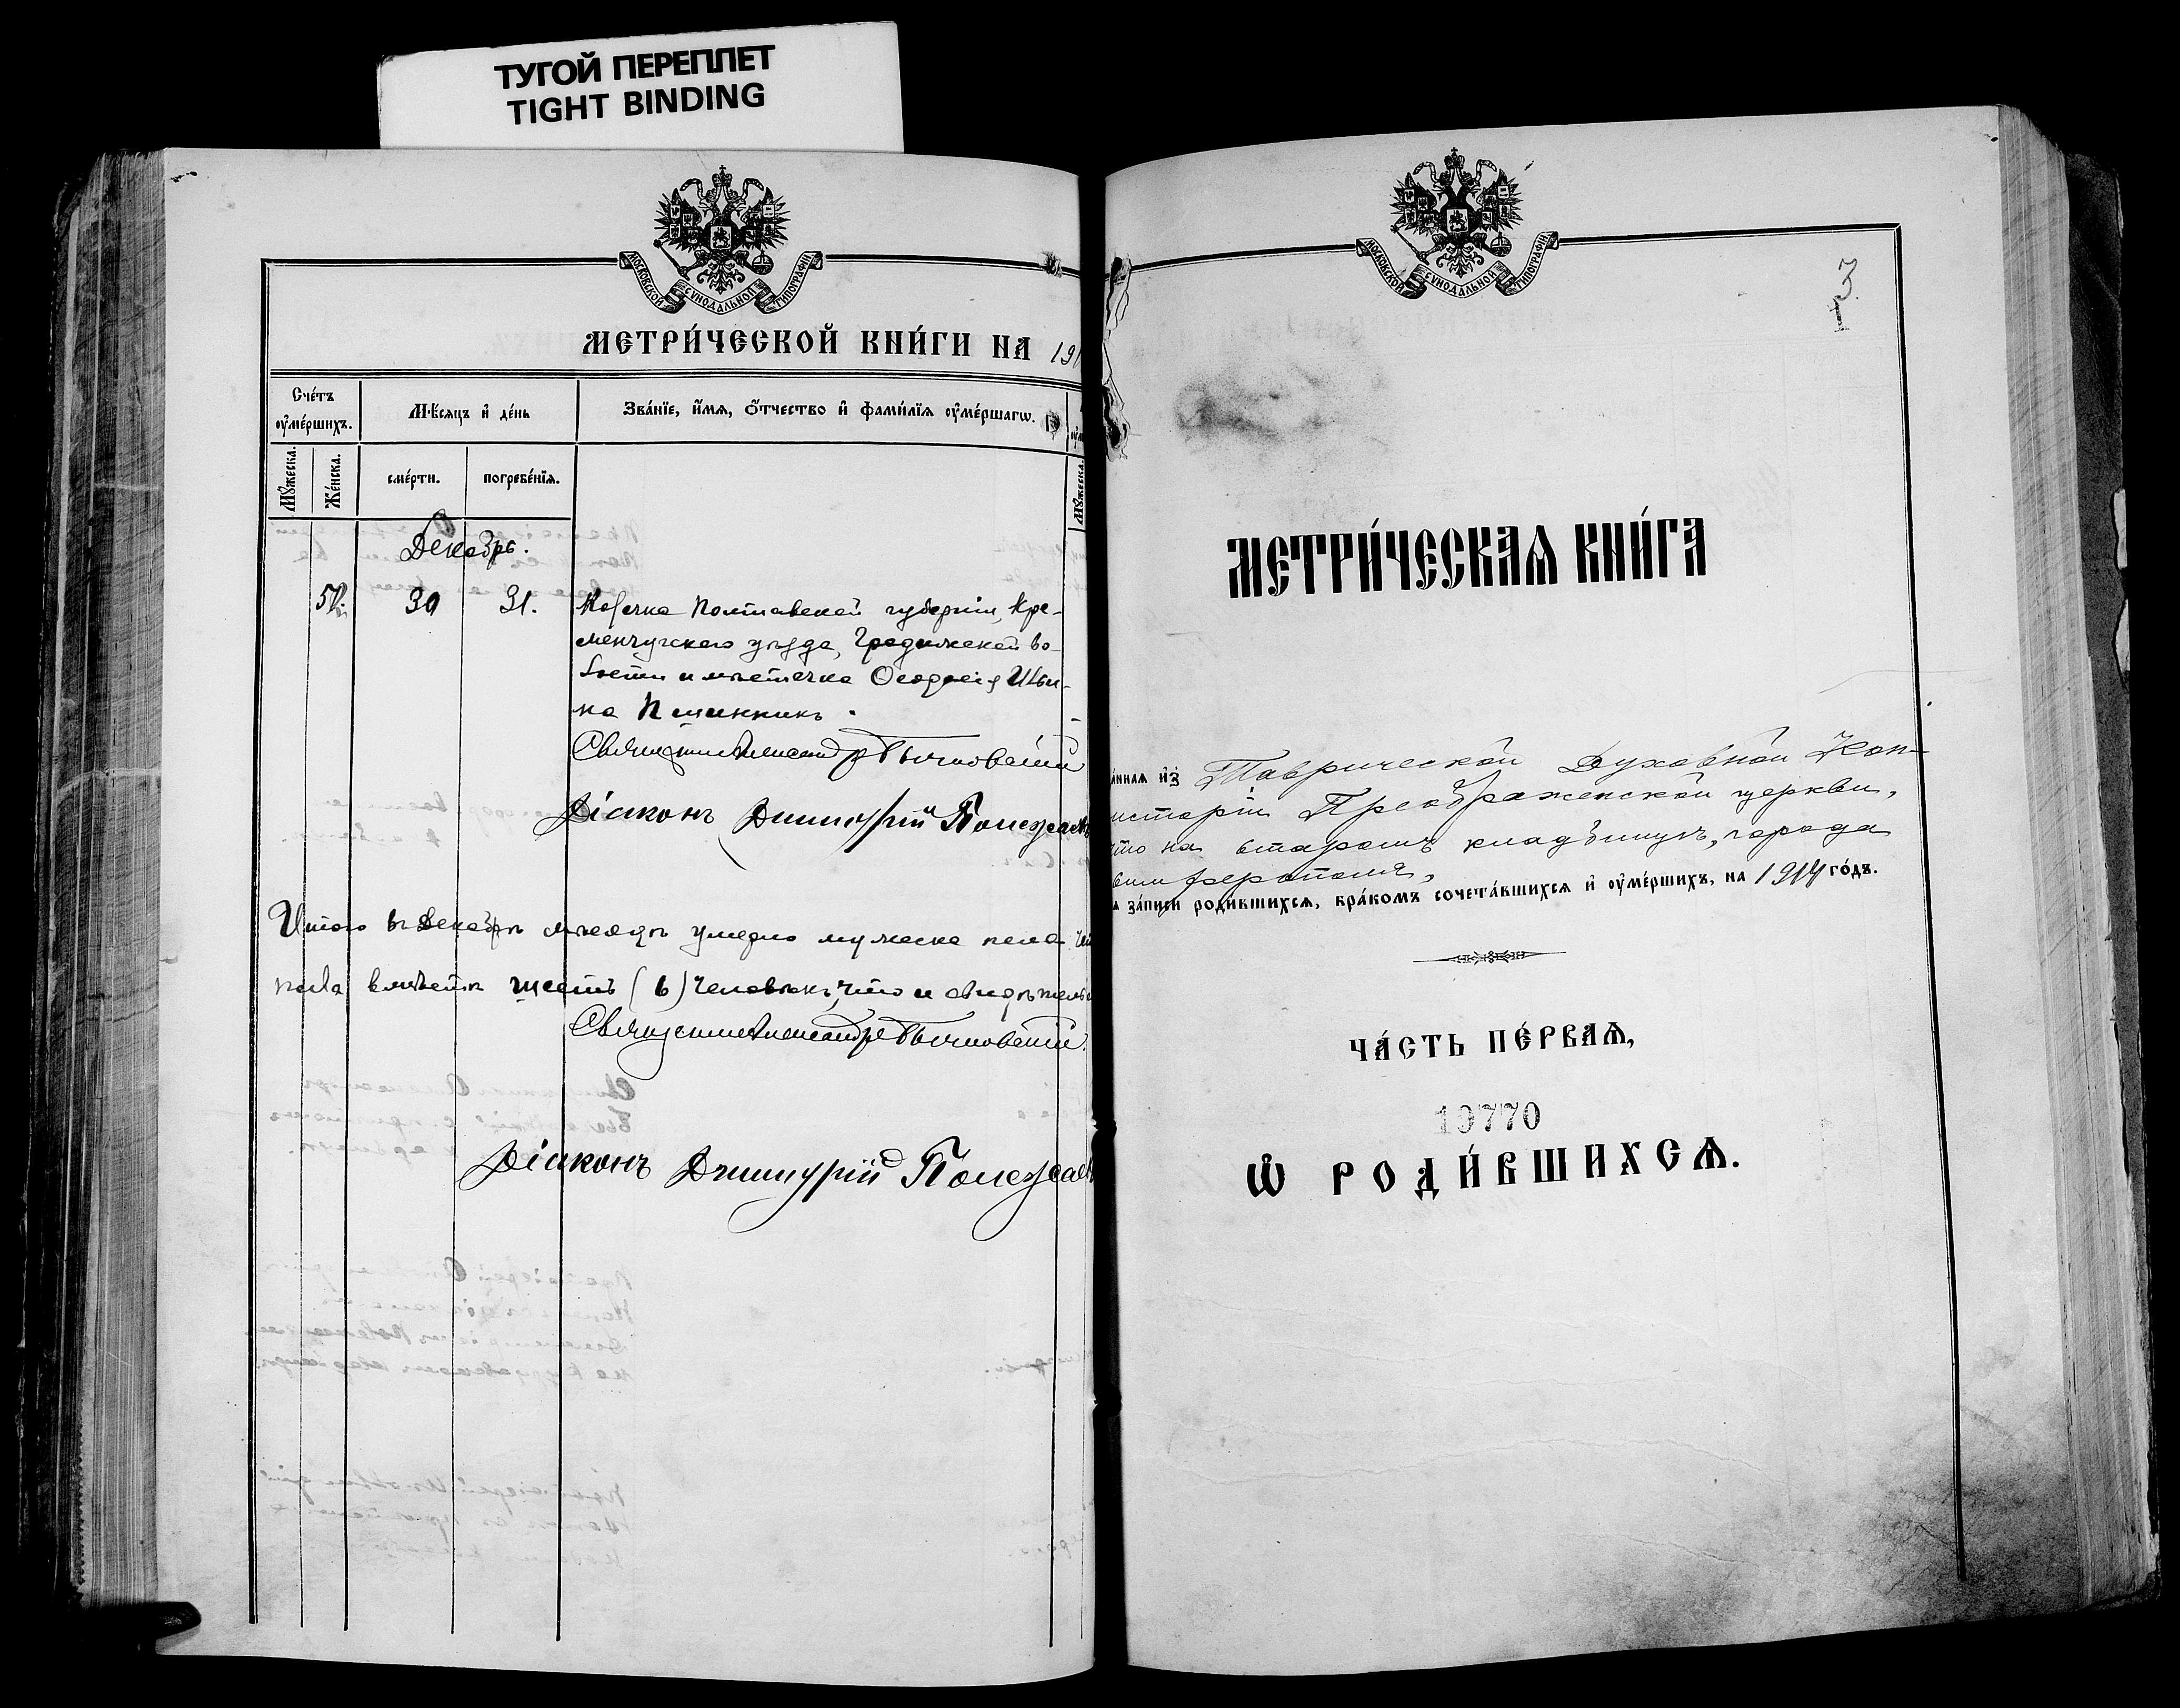 ТУГОЙ ПЕРЕПЛЕТ
TIGHT BINDING
МОСКОВСКОЙ СѴНОДАЛЬНОЙ ТИПОГРАФІИ
МЕТРИ́ЧЕСКОЙ КНИ́ГИ НА 191
Сче́тъ ᲂу҆ме́ршихъ.
Мѣ́сяцъ и҆ де́нь
Зва́нїе, и҆́мѧ, ѻ҆́тчество и҆ фами́лїѧ ᲂу҆ме́ршагѡ.
Мꙋ́жеска.
Же́нска.
сме́рти.
погребе́нїѧ.
Мꙋ́жеска.
Декабрь.
30 31. Козачка Полтавской губерніи, Кре-
менчугскаго уѣзда, Градижской во-
лости и мѣстечка Ѳеодосія
на
Священникъ Александръ
Діаконъ Димитрій
Итого въ Декабрѣ мѣсяцѣ умерло мужеска пола
пола вмѣстѣ шесть (6) человѣкъ, что и свидѣтель
Священникъ Александръ
Діаконъ Димитрій
МОСКОВСКОЙ СѴНОДАЛЬНОЙ ТИПОГРАФІИ
3
1
МЕТРИ́ЧЕСКАѦ КНИ́ГА
а́ннаѧ и҆з̾ Таврической Духовной Кон-
исторіи Преображенской церкви,
что на старомъ кладбищѣ, города
Симферополя,
ѧ за́писи роди́вшихсѧ, бра́комъ сочета́вшихсѧ и҆ ᲂу҆ме́ршихъ, на 1914 го́дъ.
ЧА́СТЬ ПЕ́РВАѦ,
19770
Ѡ҆ РОДИ́ВШИХСѦ.